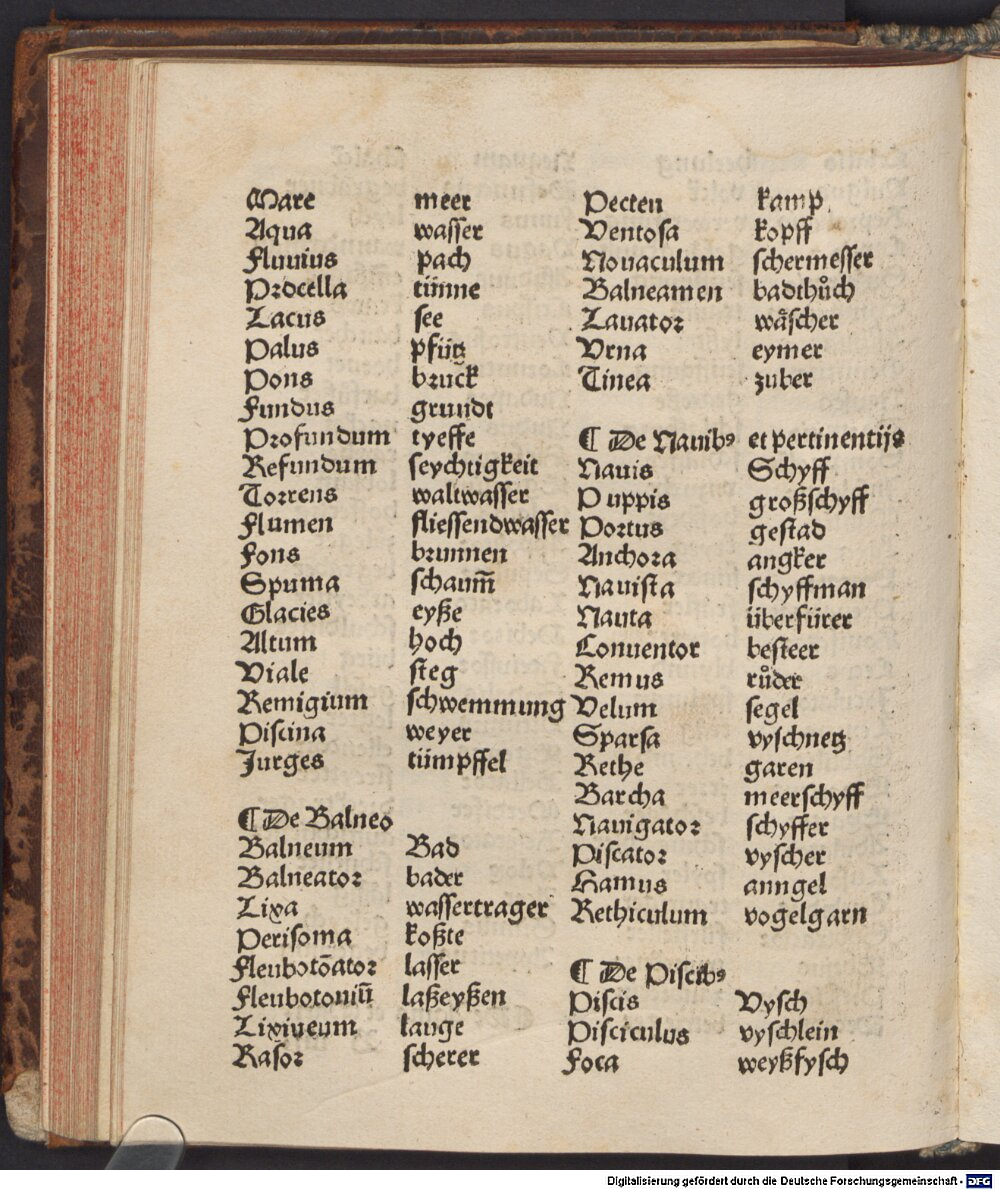 Mare meer
Aqua wasser
Fluuius pach
Procella tünne
Lacus see
Palus pfütz
Pons bruck
Fundus grundt
Profundum tyeffe
Refundum seychtigkeit
Torrens waltwasser
Flumen fliessendwasser
Fons brunnen
Spuma schaum̃
Glacies eyße
Altum hoch
Viale steg
Remigium schwemmung
Piscina weyer
Jurges tümpffel
¶ De Balneo
Balneum Bad
Balneator bader
Lixa wassertrager
Perisoma koßte
Fleubotōator lasser
Fleubotoniũ laßeyßen
Lixiueum lauge
Rasor scherer
Pecten kamp
Ventosa kopff
Nouaculum schermesser
Balneamen badthůch
Lauator wäscher
Vrna eymer
Tinea zuber
¶ De Nauibꝰ et pertinentijs
Nauis Schyff
Puppis großschyff
Portus gestad
Anchora angker
Nauista schyffman
Nauta überfürer
Conuentor besteer
Remus růder
Velum segel
Sparsa vyschnetz
Rethe garen
Barcha meerschyff
Nauigator schyffer
Piscator vyscher
Hamus anngel
Rethiculum vogelgarn
¶ De Piscibꝰ
Piscis Vysch
Pisciculus vyschlein
Foca weyßfysch
Digitalisierung gefördert durch die Deutsche Forschungsgemeinschaft - DFG